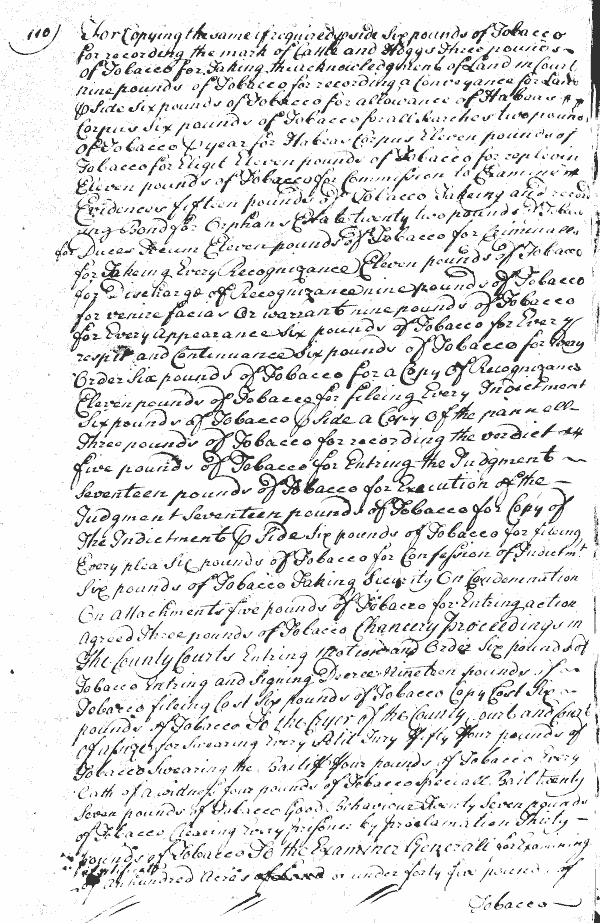 110)
For Copying the same if required ꝑ side Six pounds of Tobacco
for recording the mark of Cattle and Hoggs three pounds
of Tobacco for Taking the acknowledgment of Land in Court
nine pounds of Tobacco for recording a Conveyance for Land
ꝑ Side Six pounds of Tobacco for allowance of Habeas
Corpus Six pounds of Tobacco for all Searches two pounds
of Tobacco ꝑ year for Habeas Corpus Eleven pounds of
Tobacco for Elegit Eleven pounds of Tobacco for replevin
Eleven pounds of Tobacco for Commission to Examine
Evidences fifteen pounds of Tobacco Takeing and record
ing Bond for Orphans Estate twenty two pounds of Tobacco
for Duces Tecum Eleven pounds of Tobacco for Criminalls
for Takeing Every Recognizance Eleven pounds of Tobacco
for Discharge of Recognizance nine pounds of Tobacco
for venire facias Or warrant nine pounds of Tobacco
for Every Appearance Six pounds of Tobacco for Every
respit and Continuance Six pounds of Tobacco for Every
Order Six pounds of Tobacco for a Copy Of Recognizance
Eleven pounds of Tobacco for fileing Every Indictment
Six pounds of Tobacco ꝑ side a Copy Of the pannell
Three pounds of Tobacco for recording the verdict
five pounds of Tobacco for Entring the Judgment
Seventeen pounds of Tobacco for Execution of the
Judgment Seventeen pounds of Tobacco for Copy of
The Indictment ꝑ Side Six pounds of Tobacco for fileing
Every plea Six pounds of Tobacco for Confession of Indictmt
Six pounds of Tobacco Taking Security On Condemnation
On Attachments five pounds of Tobacco for Entring action
Agreed Three pounds of Tobacco Chancery Proceedings in
The County Courts Entring motion and Order Six pounds of
Tobacco Entring and Signing Decree Nineteen pounds of
Tobacco fileing Cost Six pounds of Tobacco Copy Cost Six
pounds of Tobacco To the Cryer of the County Court and Court
of Assize for Swearing Every Petit Jury fifty four pounds of
Tobacco Swearing the Bailiff four pounds of Tobacco Every
Oath of a witness four pounds of Tobacco speciall Bail twenty
Seven pounds of Tobacco Good Behaviour Twenty Seven pounds
of Tobacco Clearing every prisoner by proclamation Thirty
pounds of Tobacco To the Examiner Generall for Examining
Certificate
of an hundred Acres of Land or under forty five pounds of
Tobacco